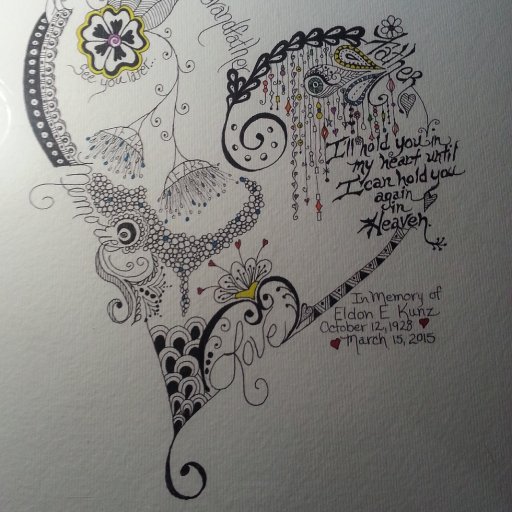 Grandfather
See you later...
Father
I'll hold you in
my heart until
I can hold you
again
in
Heaven.
In Memory of
Eldon E Kunz
October 12, 1928
March 15, 2015
Love